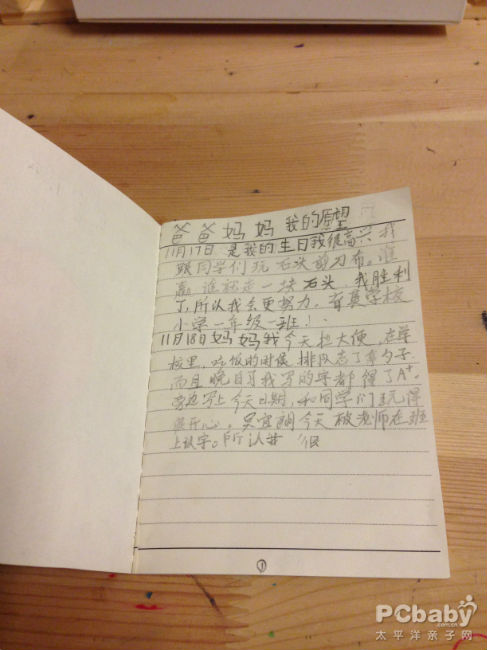 爸爸妈妈 我的愿望
11月17日 是我的生日我很高兴 我
跟同学们玩 石头剪刀布。谁
赢 谁就走一块石头,我胜利
了,所以我会更努力。育英学校
小学一年级一班!
11月18日 妈妈我今天拉大便,在学
校里,吃饭的时候 排队忘了拿勺子,
而且晚自习我写的字都得了A+。
旁边写上今天日期,和同学们玩得
很开心。今天被老师在班
上认字。所认
①
PCbaby
.com.cn
太平洋亲子网